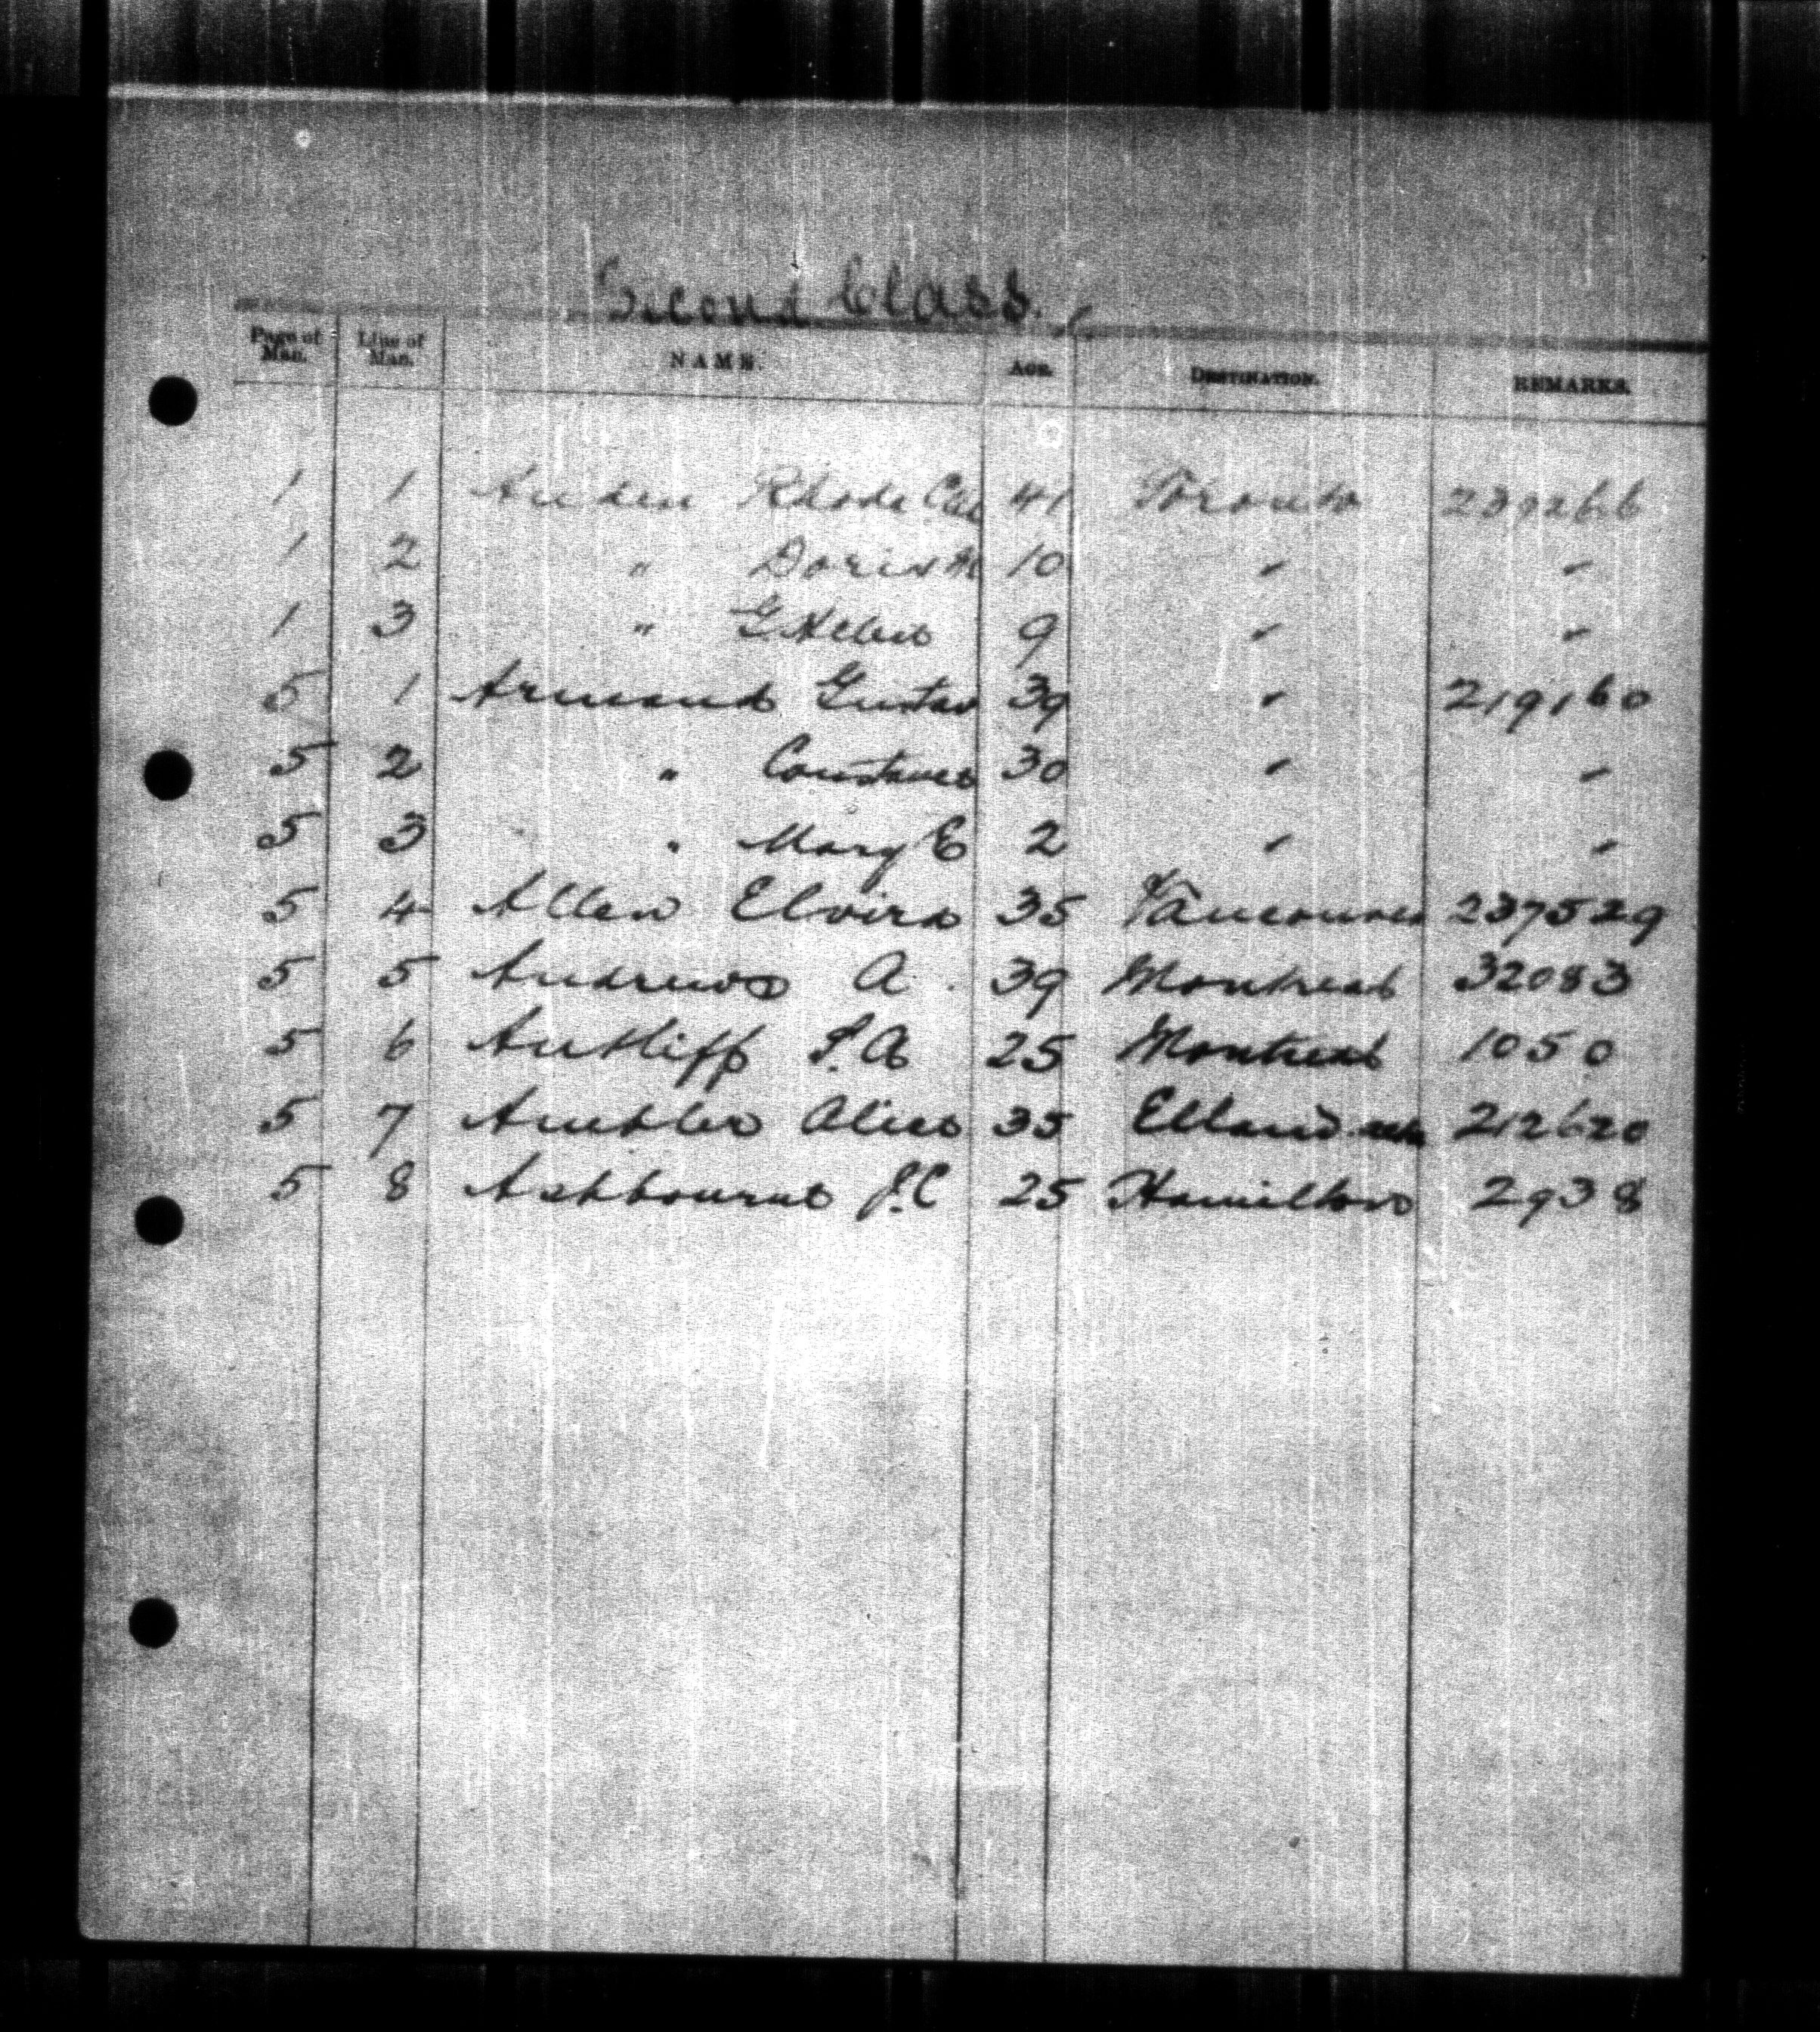 Second Class.
Page of Man. Line of Man. NAME. AGE. DESTINATION. REMARKS.
1 1 Auden 41 Toronto 239266
1 2 " Doris M 10 " "
1 3 " G 9 " "
5 1 Armand Gustav 39 " 219160
5 2 " Constance 30 " "
5 3 " Mary E 2 " "
5 4 Allen Elvira 35 Vancouver 237529
5 5 Andrews A. 39 Montreal 32083
5 6 Antliff S.A 25 Montreal 1050
5 7 Ambler Alice 35 Elland 212620
5 8 Ashbourne J.C 25 Hamilton 2938